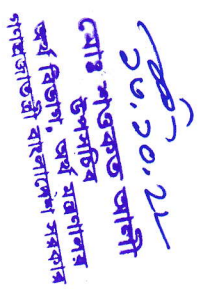 ২৬.১০.২২
মোঃ শওকত আলী
উপসচিব
অর্থ বিভাগ, অর্থ মন্ত্রণালয়
গণপ্রজাতন্ত্রী বাংলাদেশ সরকার